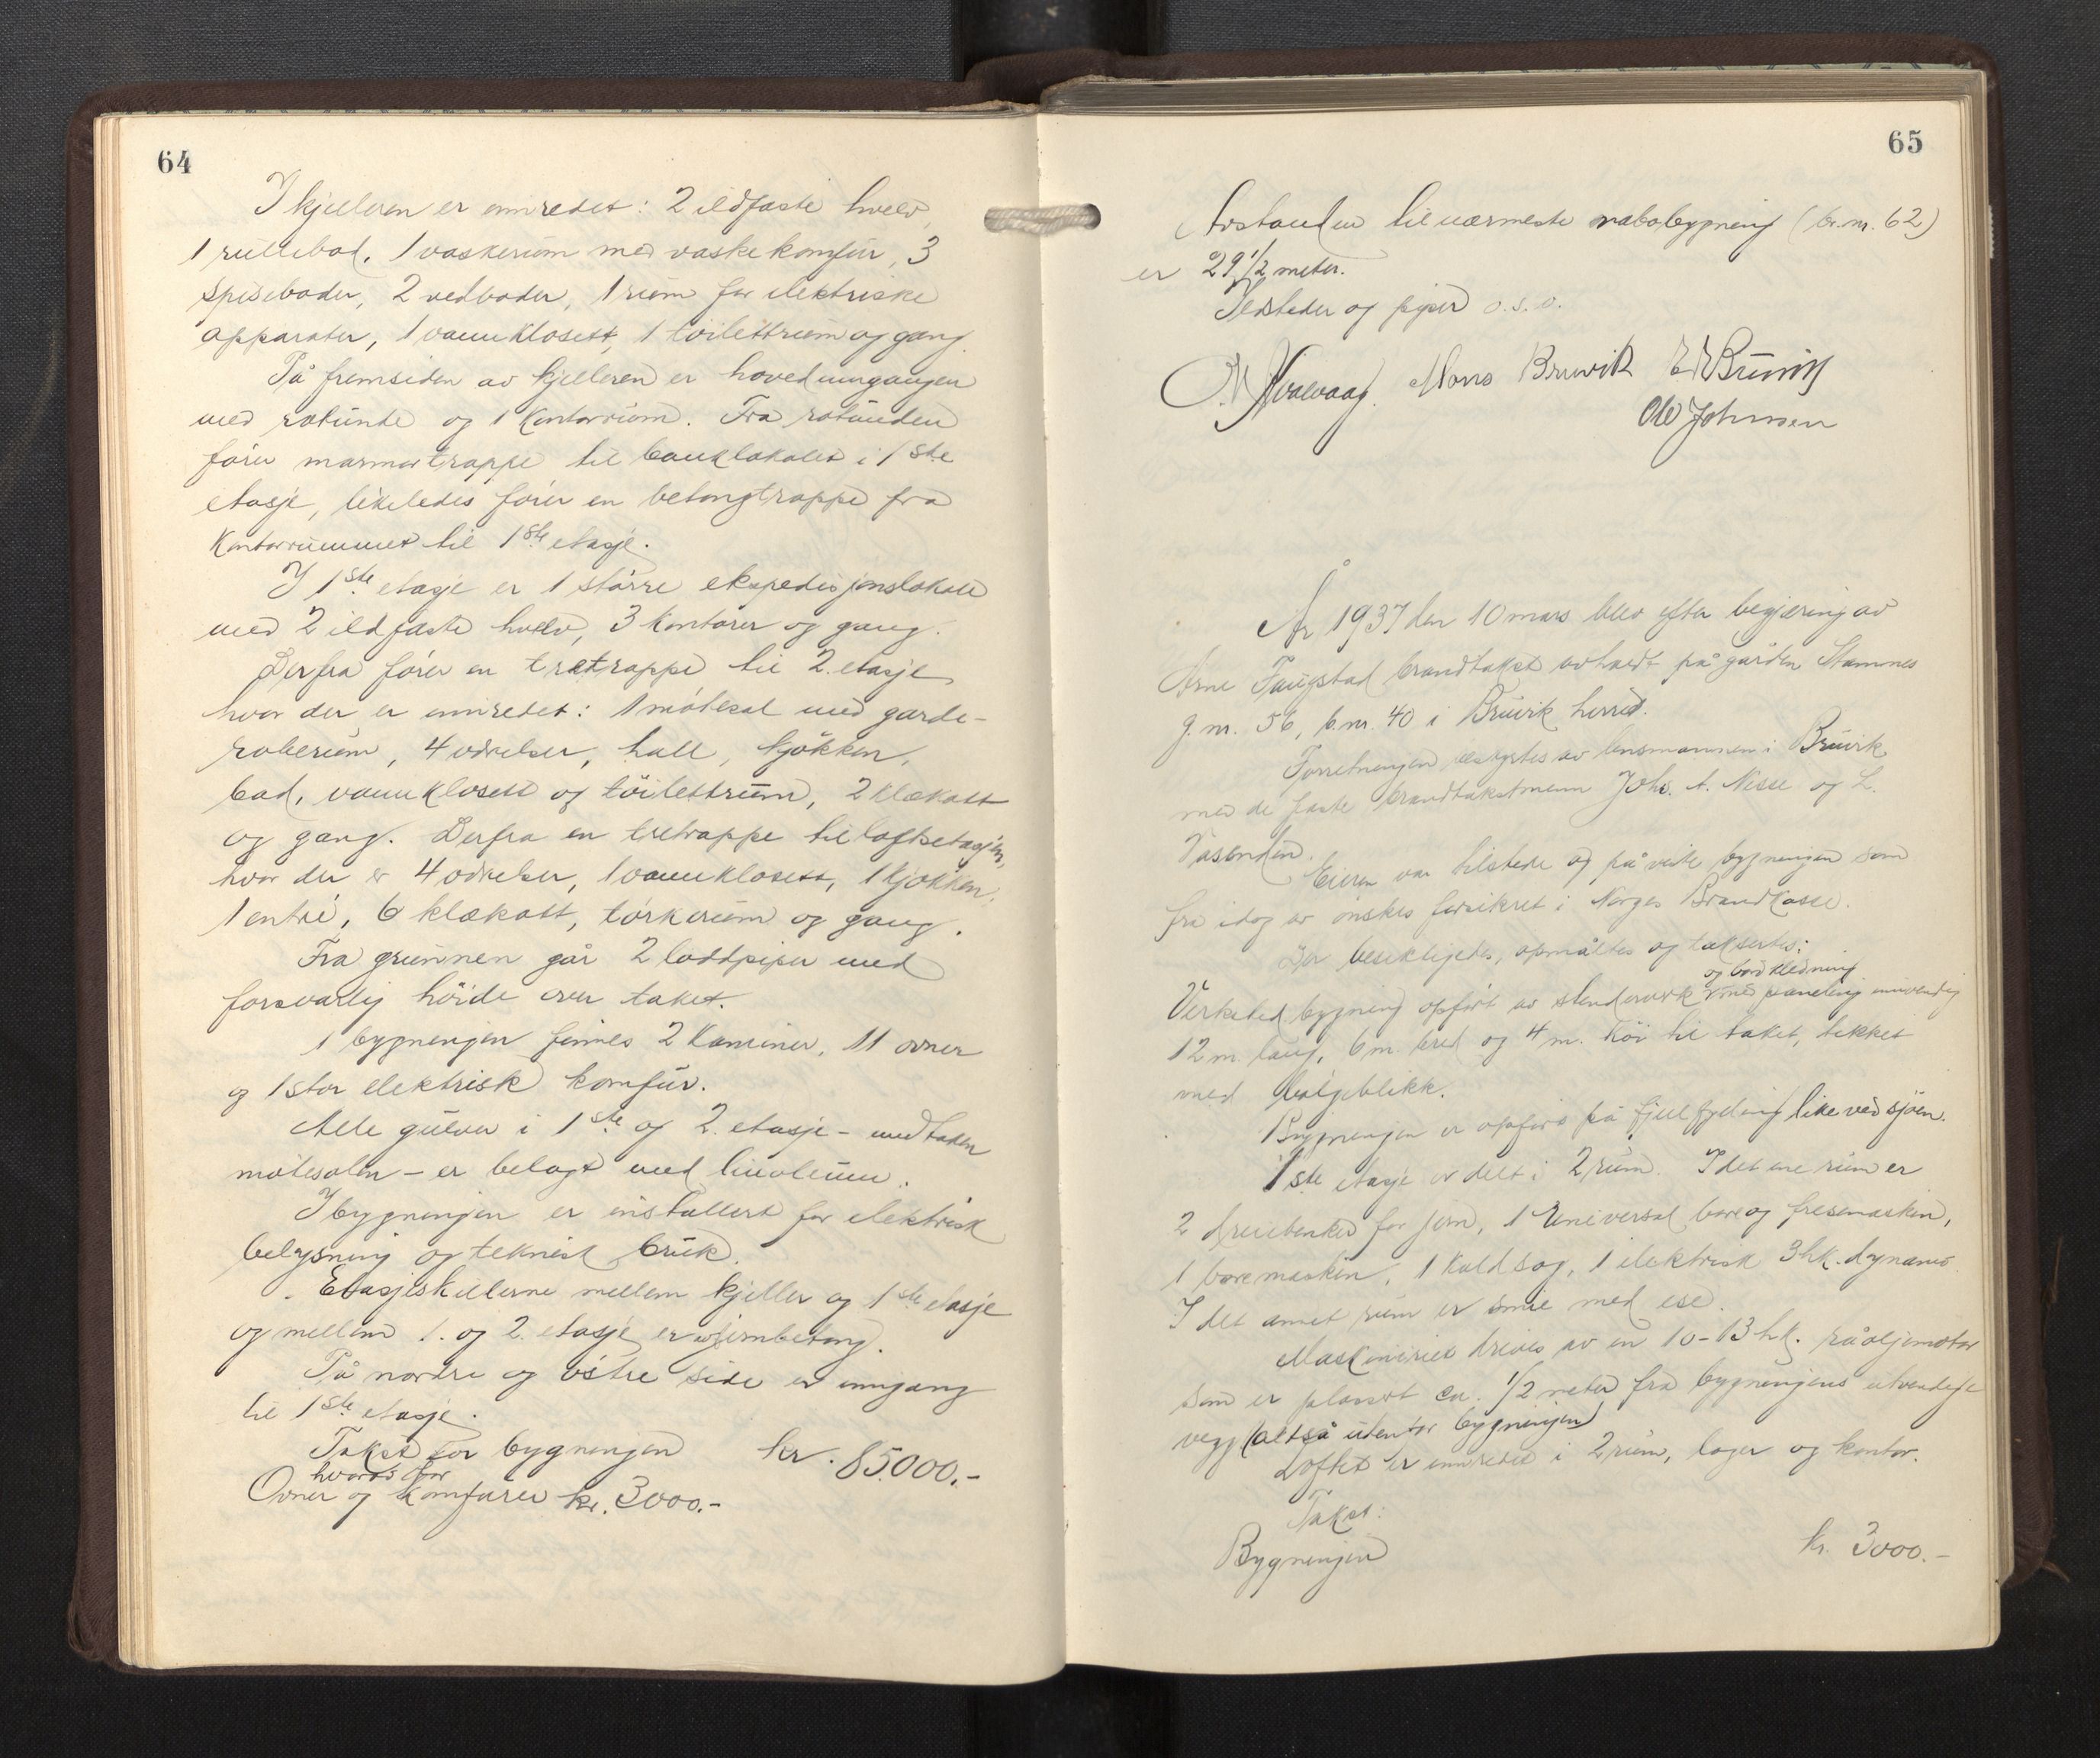 64
I kjelleren er innredet: 2 ildfaste hvelv,
1 rullebod, 1 vaskerum med vaskekomfur, 3
spiseboder, 2 vedboder, 1 rum for elektriske
apparater, 1 vannklosett, 1 toilettrum og gang.
På fremsiden av kjelleren er hovedinngangen
med rotunde og 1 kontorrum. Fra rotunden
förer marmortrappe til banklokalet i 1ste
etasje, likeledes förer en betongtrappe fra
kontorrummet til 1ste etasje.
I 1ste etasje er 1 större ekspedisjonslokale
med 2 ildfaste hvelv, 3 kontorer og gang.
Derfra förer en tretrappe til 2. etasje
hvor der er innredet: 1 mötesal med garde-
roberum, 4 værelser, hall, kjökken,
bad, vannklosett og töilettrum, 2 klækott
og gang. Derfra en tretrappe til loftsetasjen,
hvor der er 4 værelser, 1 vannklosett, 1 kjökken,
1 entré, 6 klækott, törkerum og gang.
Fra grunnen går 2 loddpiper med
forsvarlig höide over taket.
I bygningen finnes 2 kaminer, 11 ovner
og 1 stor elektrisk komfur.
Alle gulver i 1ste og 2. etasje - undtaken
mötesalen - er belagt med linoleum.
I bygningen er installert for elektrisk
belysning og teknisk bruk.
Etasjeskillerne mellem kjeller og 1ste etasje
og mellem 1. og 2. etasje er av jernbetong.
På nordre og östre side er inngang
til 1ste etasje.
Takst for bygningen kr. 85000.-
hvorav for
Ovner og komfurer kr. 3000.-
65
Avstanden til nærmeste nabobygning (br.nr. 62)
er 29 1/2 meter.
Ildsteder og piper o.s.v.
Mons Bruvik
Ole Johnsen
År 1937 den 10 mars blev efter begjæring av
Arne Faugstad brandtakst avholdt på gården Stamnes
g.nr. 56, b.nr. 40 i Bruvik herred.
Forretningen bestyrtes av lensmannen i Bruvik
med de faste brandtakstmenn Johs. A. Nesse og L.
Vasenden.
Eieren var tilstede og påviste bygningen som
fra idag av önskes forsikret i Norges Brandkasse.
Der besiktigedes, opmåltes og taksertes:
og bordkledning
Verksted bygning opfört av stenderverk med paneling innvendig
12 m. lang, 6 m. bred og 4 m. höi til taket, tekket
med bölgeblikk.
Bygningen er opfört på fjellfylding like ved sjöen.
1ste etasje er delt i 2 rum. I det ene rum er
2 dreiebenker for jern, 1 Universal bore og fresemaskin,
1 boremaskin, 1 kaldsag, 1 elektrisk 3 hk. dynamo.
I det annet rum er smie med ese.
Maskineriet drives av en 10-13 hk. råoljemotor
som er plasert ca. 1/2 meter fra bygningens utvendige
vegg (altså utenfor bygningen)
Loftet er innredet i 2 rum, lager og kontor.
Takst:
Bygningen kr. 3000.-